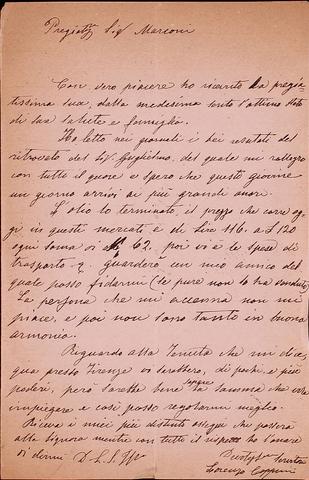 Pregiato Sigr Marconi
Con vero piacere ho ricevuto la pregia-
tissima sua, dalla medesima sento l'ottimo stato
di sua salute e famiglia.
Ho letto nei giornali i bei resultati del
ritrovato del Sigr Guglielmo, del quale mi rallegro
con tutto il cuore e spero che questo giovine
un giorno arrivi ai più grandi onori.
L'olio lo terminato, il prezzo che corre og-
gi in questi mercati è de Lire 116. a £ 120
ogni soma di 62. poi vi è le spese di
trasporto guarderò un mio amico del
quale posso fidarmi (se pure non lo ha venduto)
La persona che mi accenna non mi
piace, e poi non sono tanto in buona
armonia.
Riguardo alla Tenuta che mi dice,
qua presso Firenze vi sarebbero, di poche, e più
poderi, però sarebbe bene sapere la somma che vole
impiegare e così posso regolarmi meglio.
Riceva i miei più distinti ossequi che passerà
alla Signora mentre con tutto il rispetto ho l'onore
di dirmi D. L. S. Ill
Devotissimo Servitore
Lorenzo